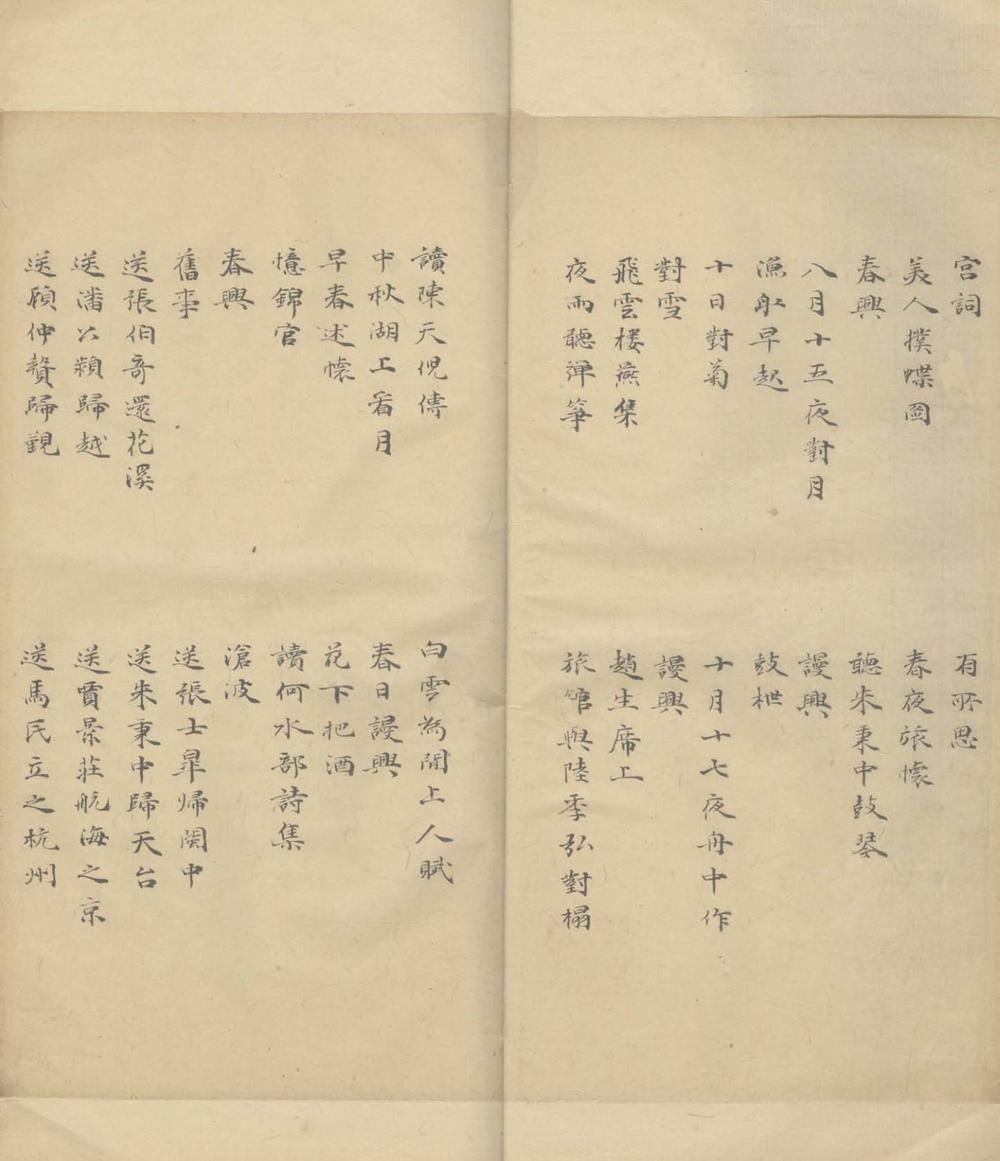 宮詞
有所思
美人撲蝶圖
春夜旅懷
春興
聽朱秉中鼓琴
八月十五夜對月
謾興
漁舟早起
鼓枻
十日對菊
十月十七夜舟中作
對雪
謾興
飛雲楼燕集
趙生席上
夜雨聽彈箏
旅館與陸季弘對榻
讀陳天倪傳
白雲為閒上人賦
中秋湖上看月
春日謾興
早春述懷
花下把酒
憶錦官
讀何水部詩集
春興
滄波
舊事
送張士皐帰閩中
送張伯奇還花溪
送朱秉中歸天台
送潘公潁歸越
送賈景莊航海之京
送顧仲贇歸覲
送馬民立之杭州